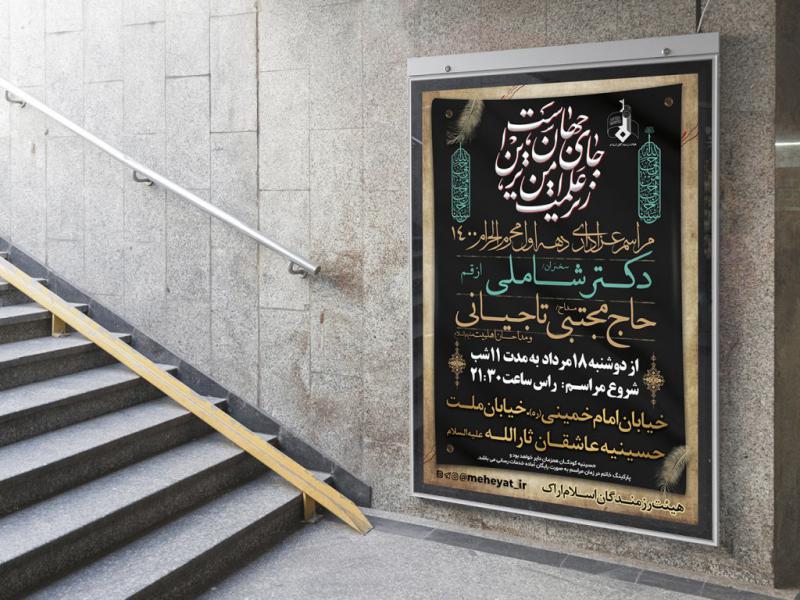 امن ترین جای جهان است
زیر علمت
مراسم عزاداری دهه اول محرم الحرام ۱۴۰۰
سخنران/ دکتر شاملی از قم
مداح/ حاج مجتبی تاجیانی
و مداحان اهلبیت علیهم السلام
از دوشنبه ۱۸ مرداد به مدت ۱۱ شب
شروع مراسم: راس ساعت ۲۱:۳۰
خیابان امام خمینی (ره)، خیابان ملت
حسینیه عاشقان ثارالله علیه السلام
حسینیه کودکان همزمان دایر خواهد بود و
پارکینگ خاتم در زمان مراسم به صورت رایگان آماده خدمات رسانی می باشد.
@meheyat_ir
هیئت رزمندگان اسلام اراک